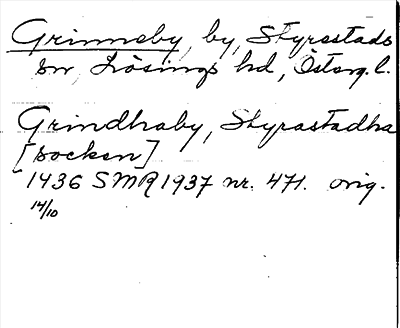 Grinneby, by, Styrestads
sn, Lösings hd, Österg. l.
Grindhaby, Styrastadha
[socken]
1436 SMR 1937 nr. 471. orig.
14/10